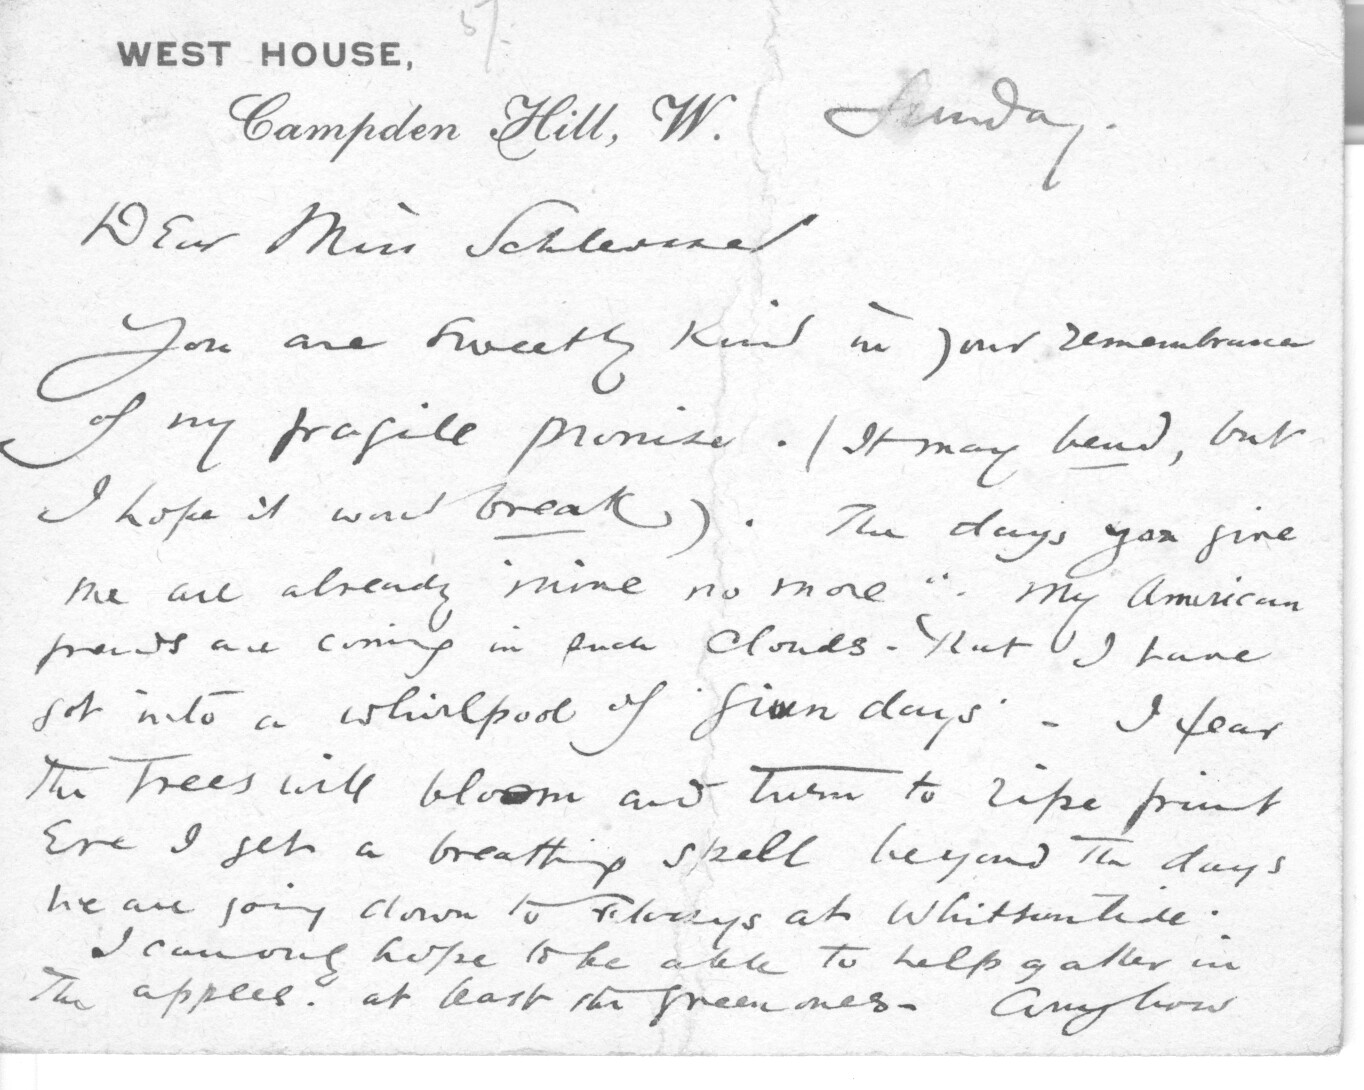 5/-
WEST HOUSE,
Campden Hill, W. Sunday.
Dear Miss
You are sweetly kind in your remembrance
of my fragile promise. (It may bend, but
I hope it won't break). The days you give
me are already "mine no more". My American
friends are coming in such clouds. That I have
got into a whirlpool of 'given days' - I fear
The Trees will bloom and turn to ripe fruit
Ere I get a breathing spell beyond The days
we are going down to at Whitsuntide.
I can only hope to be able to help gather in
The apples. at least the green ones - Anyhow